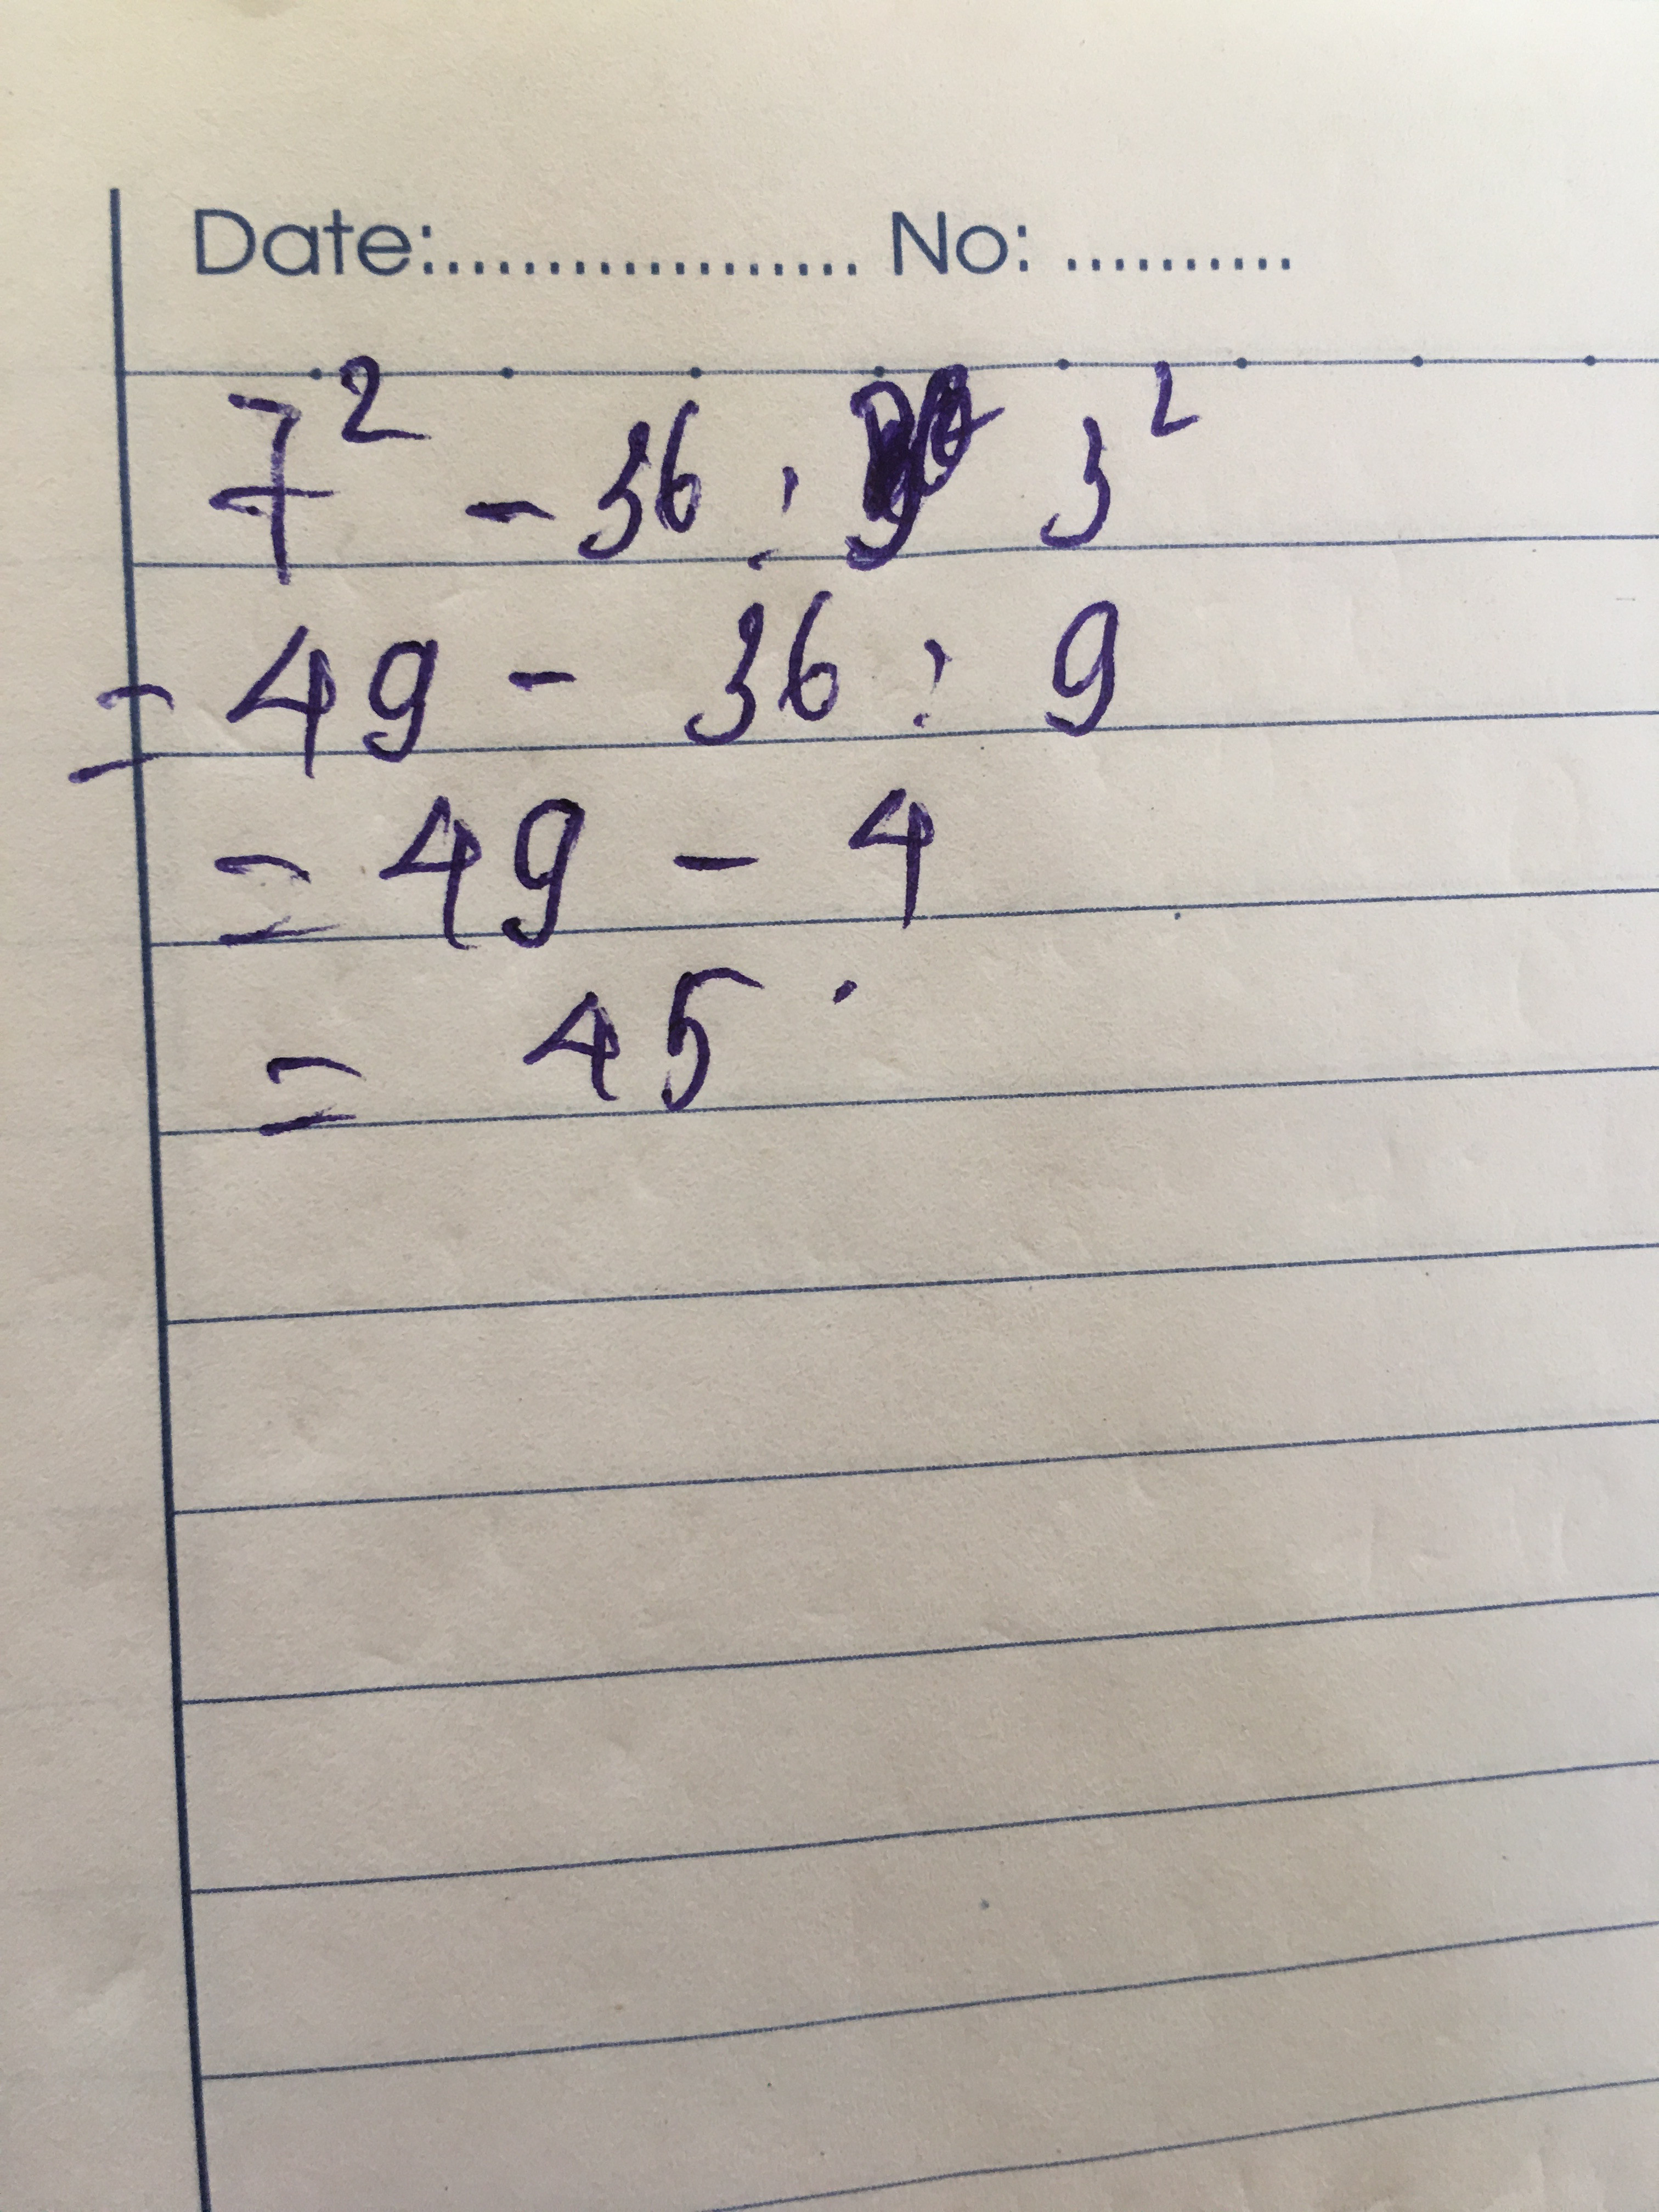 Date:.................. No: ..........
7² - 36 : 3²
= 49 - 36 : 9
= 49 - 4
= 45.